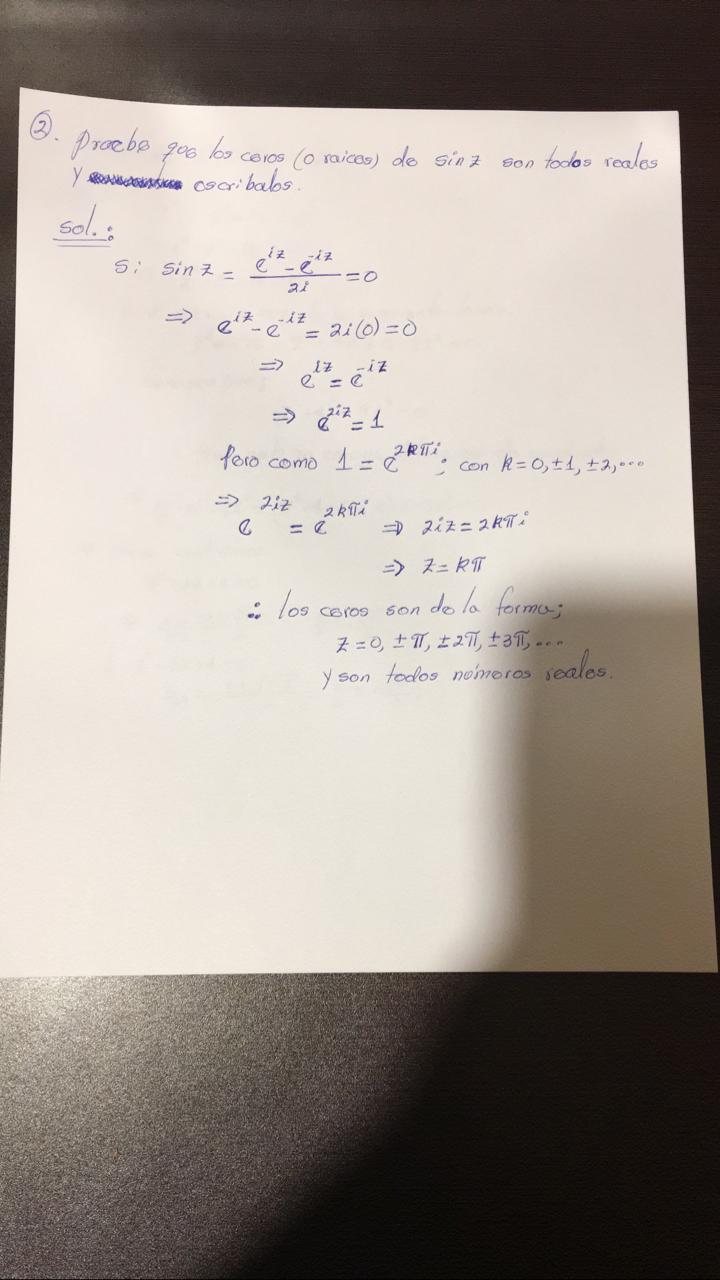 ②. Pruebe que los ceros (o raices) de sin z son todos reales
y escribalos.
sol.:
Si sin z = (e^{iz} - e^{-iz})/2i = 0
⇒ e^{iz} - e^{-iz} = 2i(0) = 0
⇒ e^{iz} = e^{-iz}
⇒ e^{2iz} = 1
Pero como 1 = e^{2kπi}; con k = 0, ±1, ±2, ...
⇒ e^{2iz} = e^{2kπi} ⇒ 2iz = 2kπi
⇒ z = kπ
∴ los ceros son de la forma;
z = 0, ±π, ±2π, ±3π, ...
y son todos números reales.